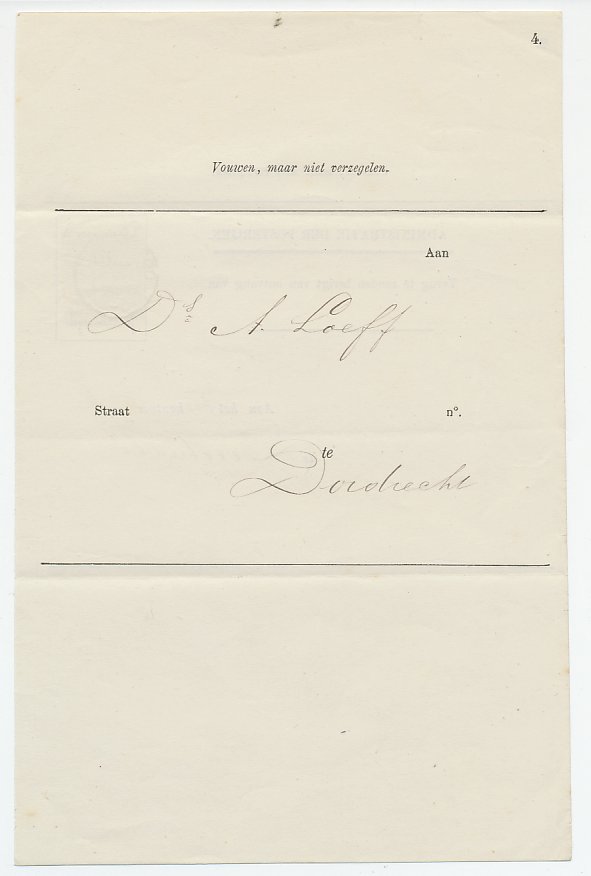 4.
Vouwen, maar niet verzegelen.
Aan
Ds A. Loeff
Straat n°.
te
Dordrecht